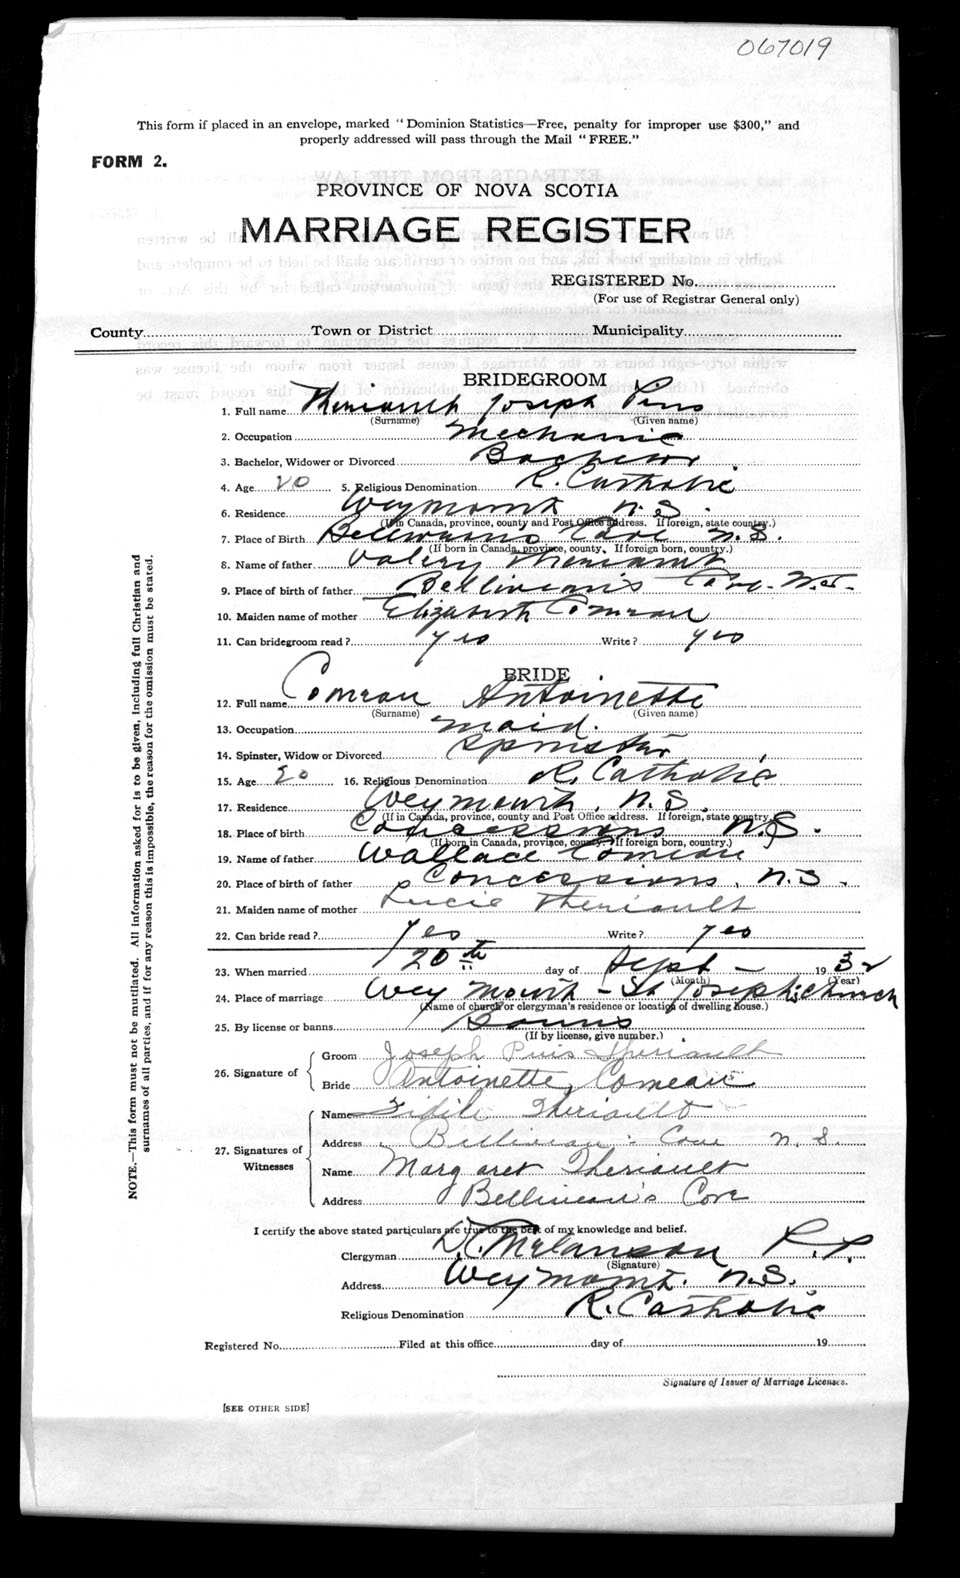 067019
This form if placed in an envelope, marked "Dominion Statistics—Free, penalty for improper use $300," and
properly addressed will pass through the Mail "FREE."
FORM 2.
PROVINCE OF NOVA SCOTIA
MARRIAGE REGISTER
REGISTERED No.
(For use of Registrar General only)
County Town or District Municipality
BRIDEGROOM
1. Full name Theriault Joseph Pius
(Surname) (Given name)
2. Occupation Mechanic
3. Bachelor, Widower or Divorced Bachelor
4. Age 20 5. Religious Denomination R. Catholic
6. Residence Weymouth N.S.
(If in Canada, province, county and Post Office address. If foreign, state country.)
7. Place of Birth Belliveau's Cove N.S.
(If born in Canada, province, county. If foreign born, country.)
8. Name of father Valery Theriault
9. Place of birth of father Belliveau's Cove N.S.
10. Maiden name of mother Elizabeth Comeau
11. Can bridegroom read? yes Write? yes
BRIDE
12. Full name Comeau Antoinette
(Surname) (Given name)
13. Occupation maid.
14. Spinster, Widow or Divorced Spinster
15. Age 20 16. Religious Denomination R. Catholic
17. Residence Weymouth, N.S.
(If in Canada, province, county and Post Office address. If foreign, state country.)
18. Place of birth Concessions N.S.
(If born in Canada, province, county. If foreign born, country.)
19. Name of father Wallace Comeau
20. Place of birth of father Concessions, N.S.
21. Maiden name of mother Lucie Theriault
22. Can bride read? Yes Write? yes
23. When married 20th day of Sept – 1932
(Month) (Year)
24. Place of marriage Weymouth – St Joseph's Church
(Name of church or clergyman's residence or location of dwelling house.)
25. By license or banns Banns
(If by license, give number.)
26. Signature of Groom Joseph Pius Theriault
Bride Antoinette Comeau
27. Signatures of Witnesses Name Fidile Theriault
Address Belliveau's Cove N.S.
Name Margaret Theriault
Address Belliveau's Cove
I certify the above stated particulars are true to the best of my knowledge and belief.
Clergyman D.C. Melanson P.P.
(Signature)
Address Weymouth. N.S.
Religious Denomination R. Catholic
Registered No. Filed at this office day of 19
Signature of Issuer of Marriage Licenses.
[SEE OTHER SIDE]
NOTE.—This form must not be mutilated. All information asked for is to be given, including full Christian and
surnames of all parties, and if for any reason this is impossible, the reason for the omission must be stated.